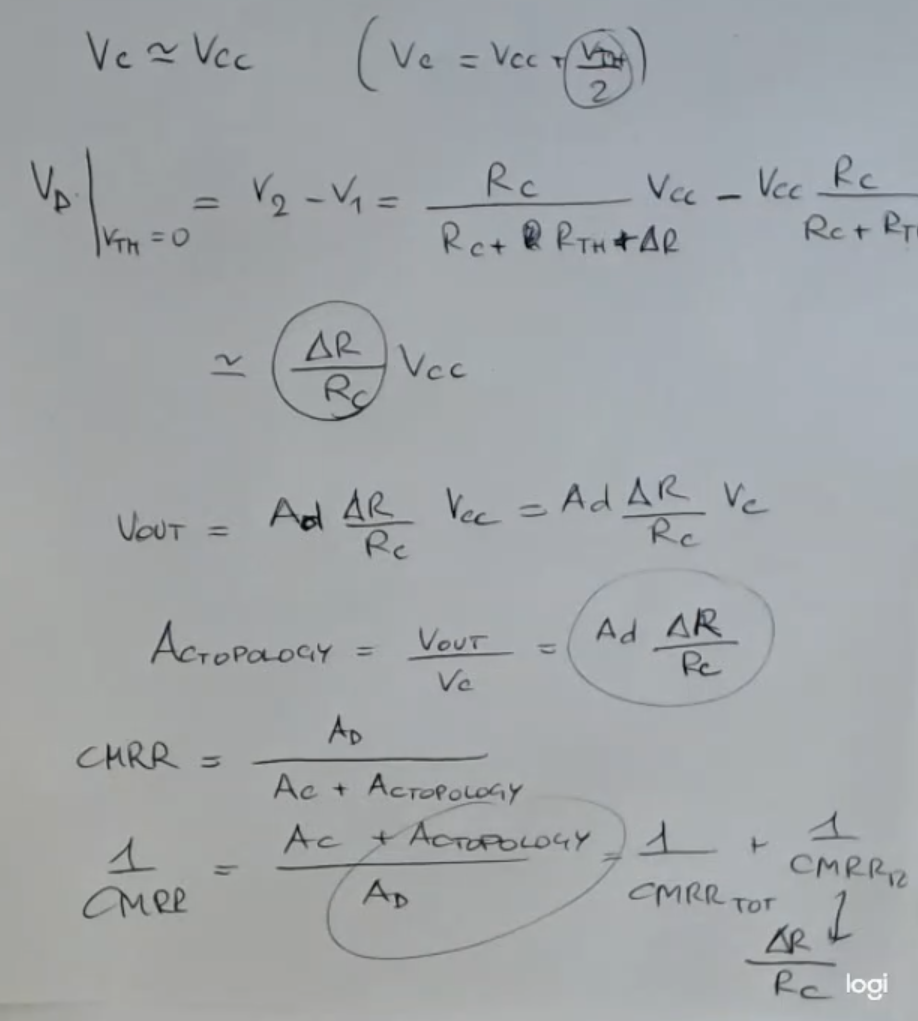 Vc ≃ Vcc (Vc = Vcc + VTH/2)
VD|VTH=0 = V2 - V1 = Rc/(Rc + RTH + ΔR) Vcc - Vcc Rc/(Rc + RT
≃ ΔR/Rc Vcc
VOUT = Ad ΔR/Rc Vcc = Ad ΔR/Rc Vc
ACTOPOLOGY = VOUT/Vc = Ad ΔR/Rc
CMRR = AD/(Ac + ACTOPOLOGY)
1/CMRR = (Ac + ACTOPOLOGY)/AD = 1/CMRR TOT + 1/CMRR12
ΔR/Rc
logi